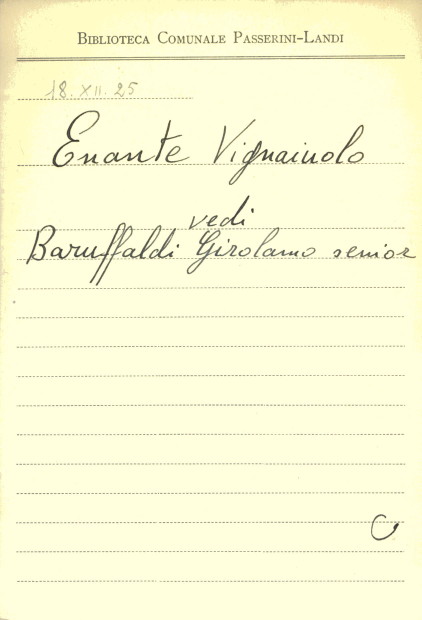 BIBLIOTECA COMUNALE PASSERINI-LANDI
18. XII. 25
Enante Vignaiuolo
vedi
Baruffaldi Girolamo senior
C